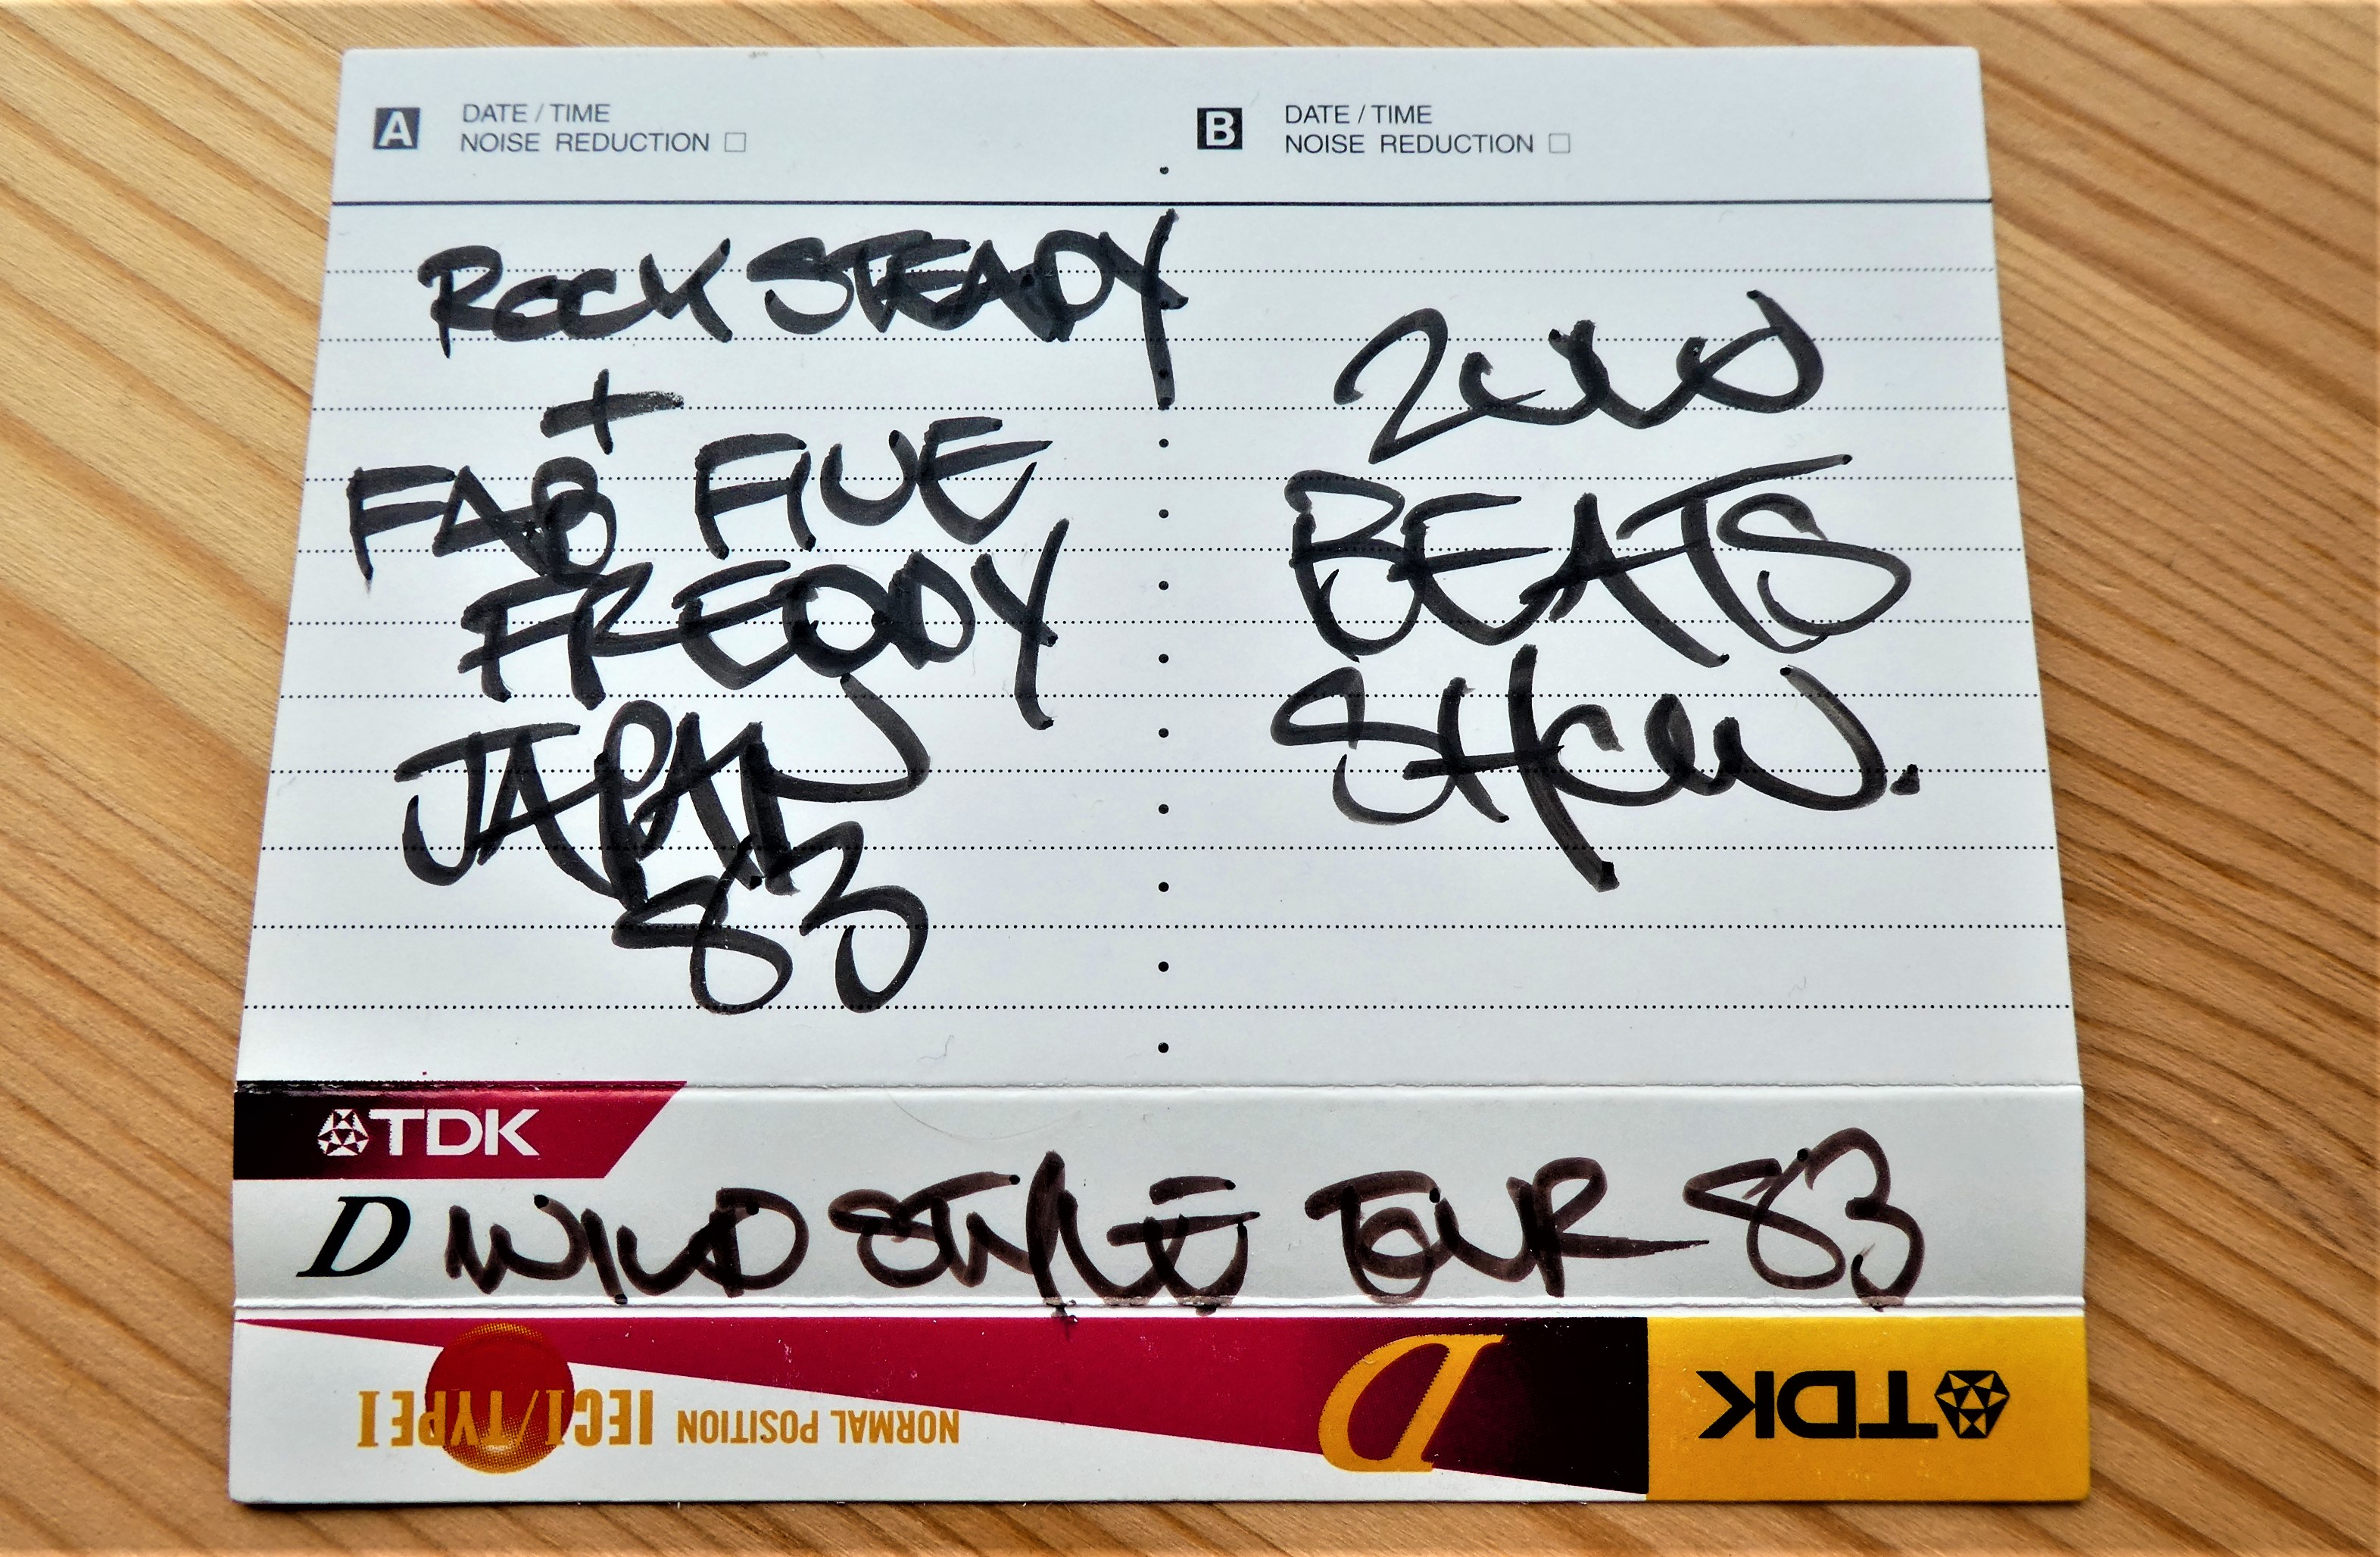 A DATE / TIME
NOISE REDUCTION
B DATE / TIME
NOISE REDUCTION
ROCK STEADY
+
FAB FIVE
FREDDY
JAPAN
83
ZULU
BEATS
SHOW.
TDK
D WILD STYLE TOUR 83
TDK
D
NORMAL POSITION IECI/TYPE I